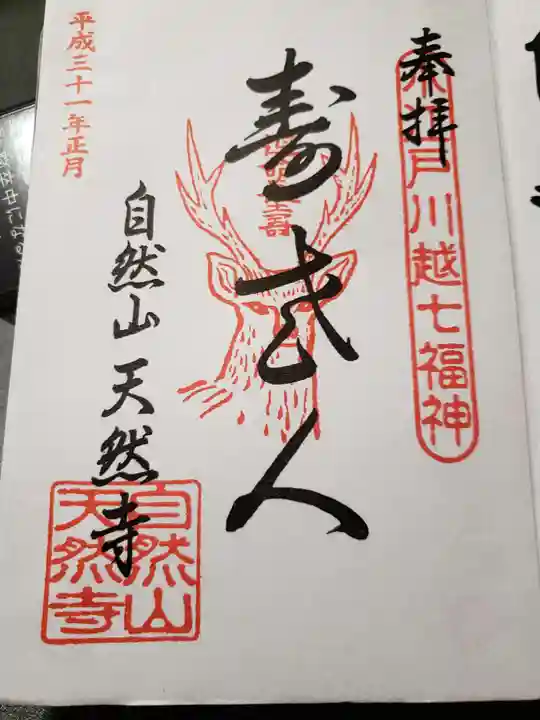 奉拝
小江戸川越七福神
寿老人
自然山天然寺
平成三十一年正月
自然山
天然寺